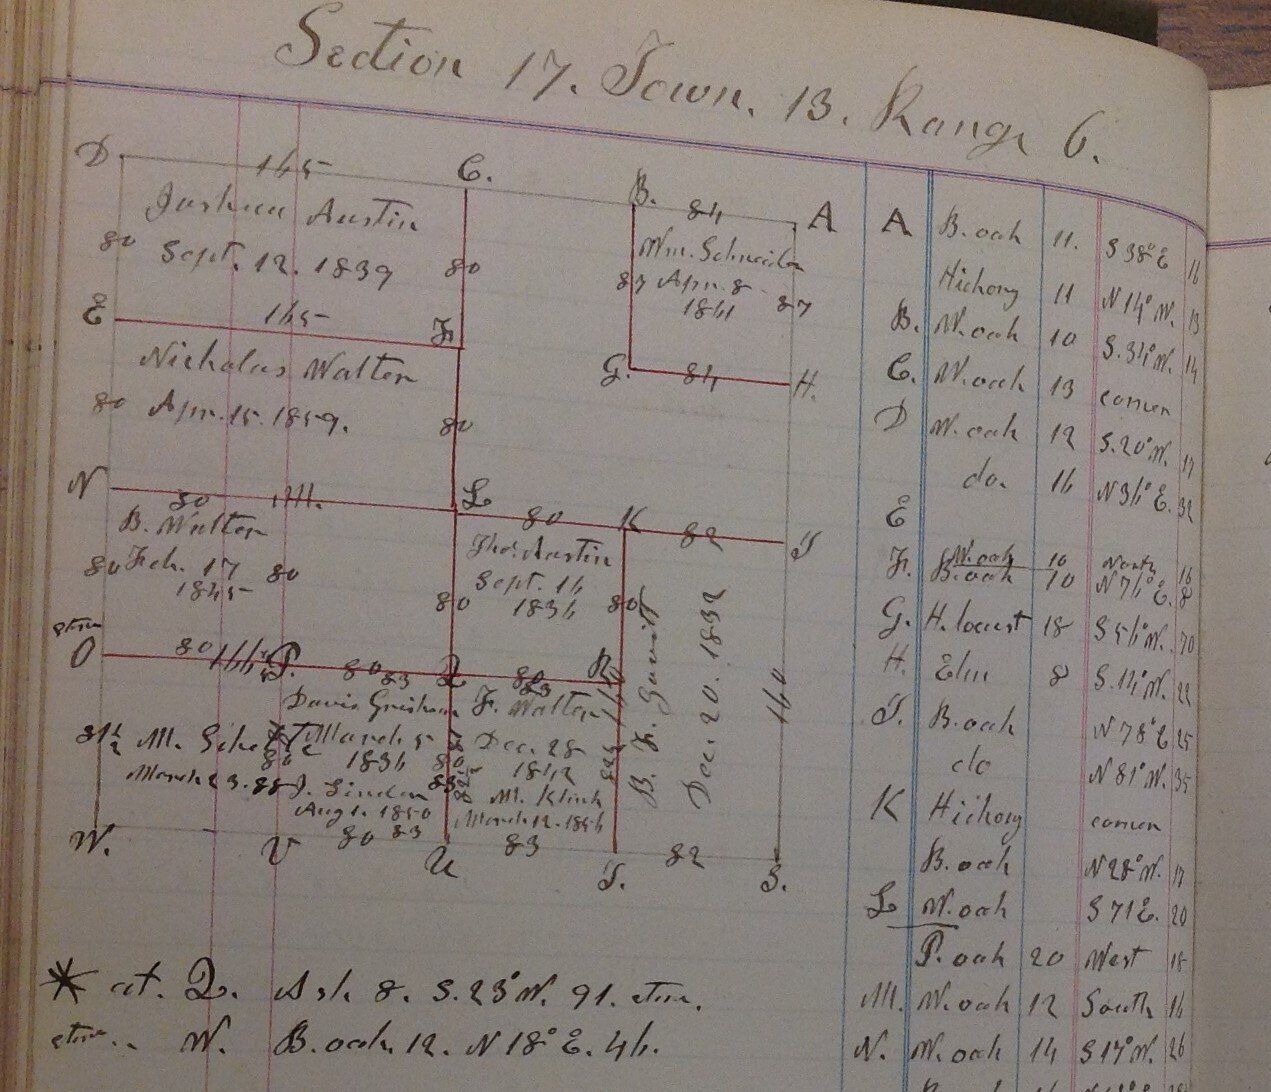 Section 17. Town. 13. Range 6.
D. 165 C. B. 84 A
Joshua Austin
80 Sept. 12. 1839 80
Wm. Schneider
87 Apr. 8 87
1861
E 165 F.
G. 84 H.
Nicholas Walter
80 Apr. 15. 1859. 80
N 80 M. L 80 K 82 I
B. Walter
80 Feb. 17 80
1845
Thos. Austin
Sept. 16
80 1836 80
B. F. Gavit
Dec. 20. 1832
160
O 80 P. 80 83 Q 80 R
Davis Grisham
March 5
1836 80
F. Walter
Dec. 28
1842
M.
March 23. 88
J. Linder
Aug 1. 1850
80 83
M. Klink
March 12. 1856
83
W. V U T. 82 S.
A B. oak 11. S 38° E 16
Hickory 11 N 14° W. 13
B. W. oak 10 S. 34° W. 14
C. W. oak 13 corner
D W. oak 12 S. 20° W. 17
do. 16 N 36° E. 32
E
F. W. oak 10 North 16
B. oak 10 N 76° E. 8
G. H. locust 18 S 56° W. 70
H. Elm 8 S. 14° W. 22
I. B. oak N 78° E 25
do N 81° W. 35
K Hickory corner
B. oak N 28° W. 17
L W. oak S 71 E. 20
P. oak 20 West 18
M. W. oak 12 South 16
N. W. oak 14 S 17° W. 26
* at. Q. Ash. 8. S. 23° W. 91.
W. B. oak. 12. N 18° E. 46.